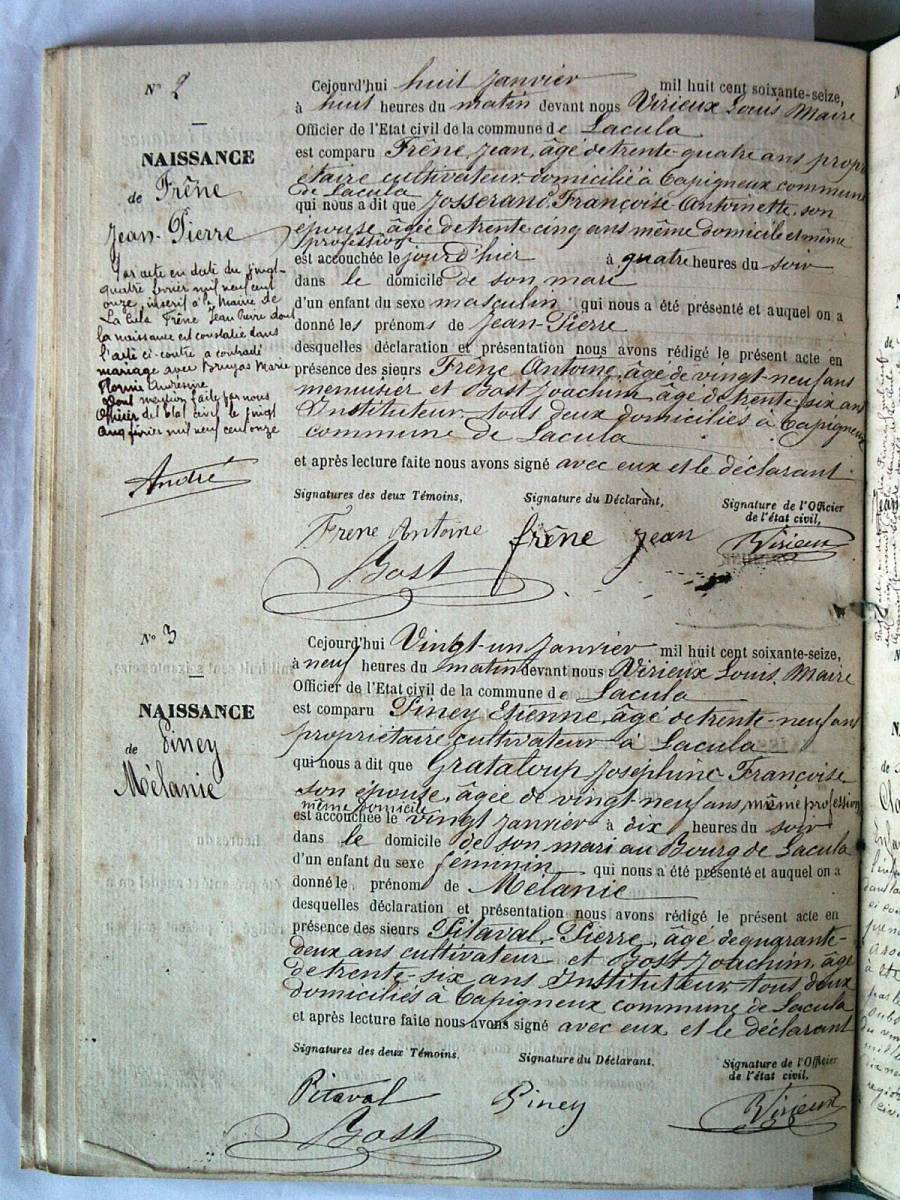 N° 2
NAISSANCE
de Frêne
Jean-Pierre
Par acte en date du vingt-
quatre février mil neuf cent
onze, inscrit à la Mairie de
La Cula Frêne Jean Pierre dont
la naissance est constatée dans
l'acte ci-contre a contracté
mariage avec Bruyas Marie
Dont mention faite par nous
Officier de l'état civil le vingt
cinq février mil neuf cent onze
André
Cejourd'hui huit Janvier mil huit cent soixante-seize,
à huit heures du matin devant nous Virieux Louis Maire
Officier de l'Etat civil de la commune de Lacula
est comparu Frêne Jean, âgé de trente-quatre ans propri
étaire cultivateur domicilié à Capigneux commune
de Lacula
qui nous a dit que Josserand Françoise Antoinette, son
épouse, âgée de trente cinq ans même domicile et même
profession
est accouchée le jour d'hier à quatre heures du soir
dans le domicile de son mari
d'un enfant du sexe masculin qui nous a été présenté et auquel on a
donné les prénoms de Jean-Pierre
desquelles déclaration et présentation nous avons rédigé le présent acte en
présence des sieurs Frêne Antoine, âgé de vingt-neuf ans
menuisier et Bost Joachim âgé de trente-six ans
Instituteur tous deux domiciliés à Capigneux
commune de Lacula
et après lecture faite nous avons signé avec eux et le déclarant
Signatures des deux Témoins, Signature du Déclarant, Signature de l'Officier
de l'état civil,
Frene Antoine frêne Jean Virieux
Bost
N° 3
NAISSANCE
de Piney
Mélanie
Cejourd'hui Vingt-un Janvier mil huit cent soixante-seize,
à neuf heures du matin devant nous Virieux Louis Maire
Officier de l'Etat civil de la commune de Lacula
est comparu Piney Etienne, âgé de trente-neuf ans
propriétaire cultivateur à Lacula
qui nous a dit que Grataloup Joséphine Françoise
son épouse, âgée de vingt-neuf ans, même profession
même domicile
est accouchée le vingt Janvier à dix heures du soir
dans le domicile de son mari au Bourg de Lacula
d'un enfant du sexe féminin qui nous a été présenté et auquel on a
donné le prénom de Mélanie
desquelles déclaration et présentation nous avons rédigé le présent acte en
présence des sieurs Pitaval Pierre, âgé de quarante-
deux ans cultivateur et Bost Joachim, âgé
de trente-six ans Instituteur tous deux
domiciliés à Capigneux commune de Lacula
et après lecture faite nous avons signé avec eux et le déclarant
Signatures des deux Témoins. Signature du Déclarant, Signature de l'Officier
de l'état civil,
Pitaval Piney Virieux
Bost